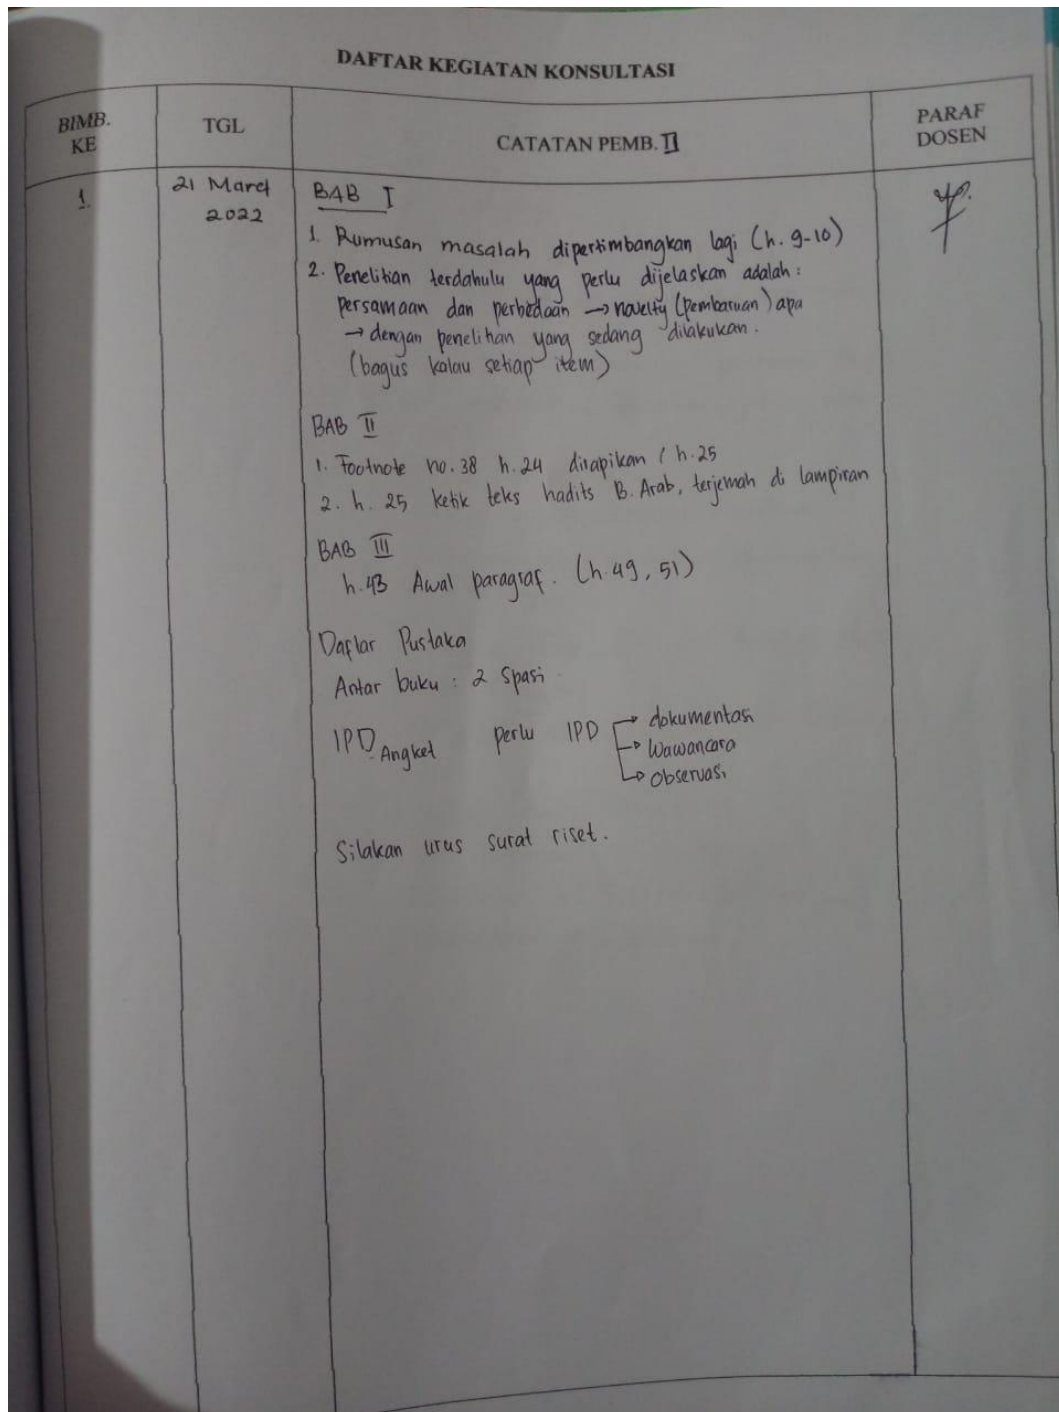 DAFTAR KEGIATAN KONSULTASI
BIMB. KE
TGL
CATATAN PEMB. II
PARAF DOSEN
1.
21 Maret
2022
BAB I
1. Rumusan masalah dipertimbangkan lagi (h. 9-10)
2. Penelitian terdahulu yang perlu dijelaskan adalah :
persamaan dan perbedaan → novelty (pembaruan) apa
→ dengan penelitian yang sedang dilakukan.
(bagus kalau setiap item)
BAB II
1. Footnote no. 38 h. 24 dirapikan / h. 25
2. h. 25 ketik teks hadits B. Arab, terjemah di lampiran
BAB III
h. 43 Awal paragraf. (h. 49, 51)
Daftar Pustaka
Antar buku : 2 spasi
IPD Angket perlu IPD → dokumentasi
→ Wawancara
→ Observasi
Silakan urus surat riset.